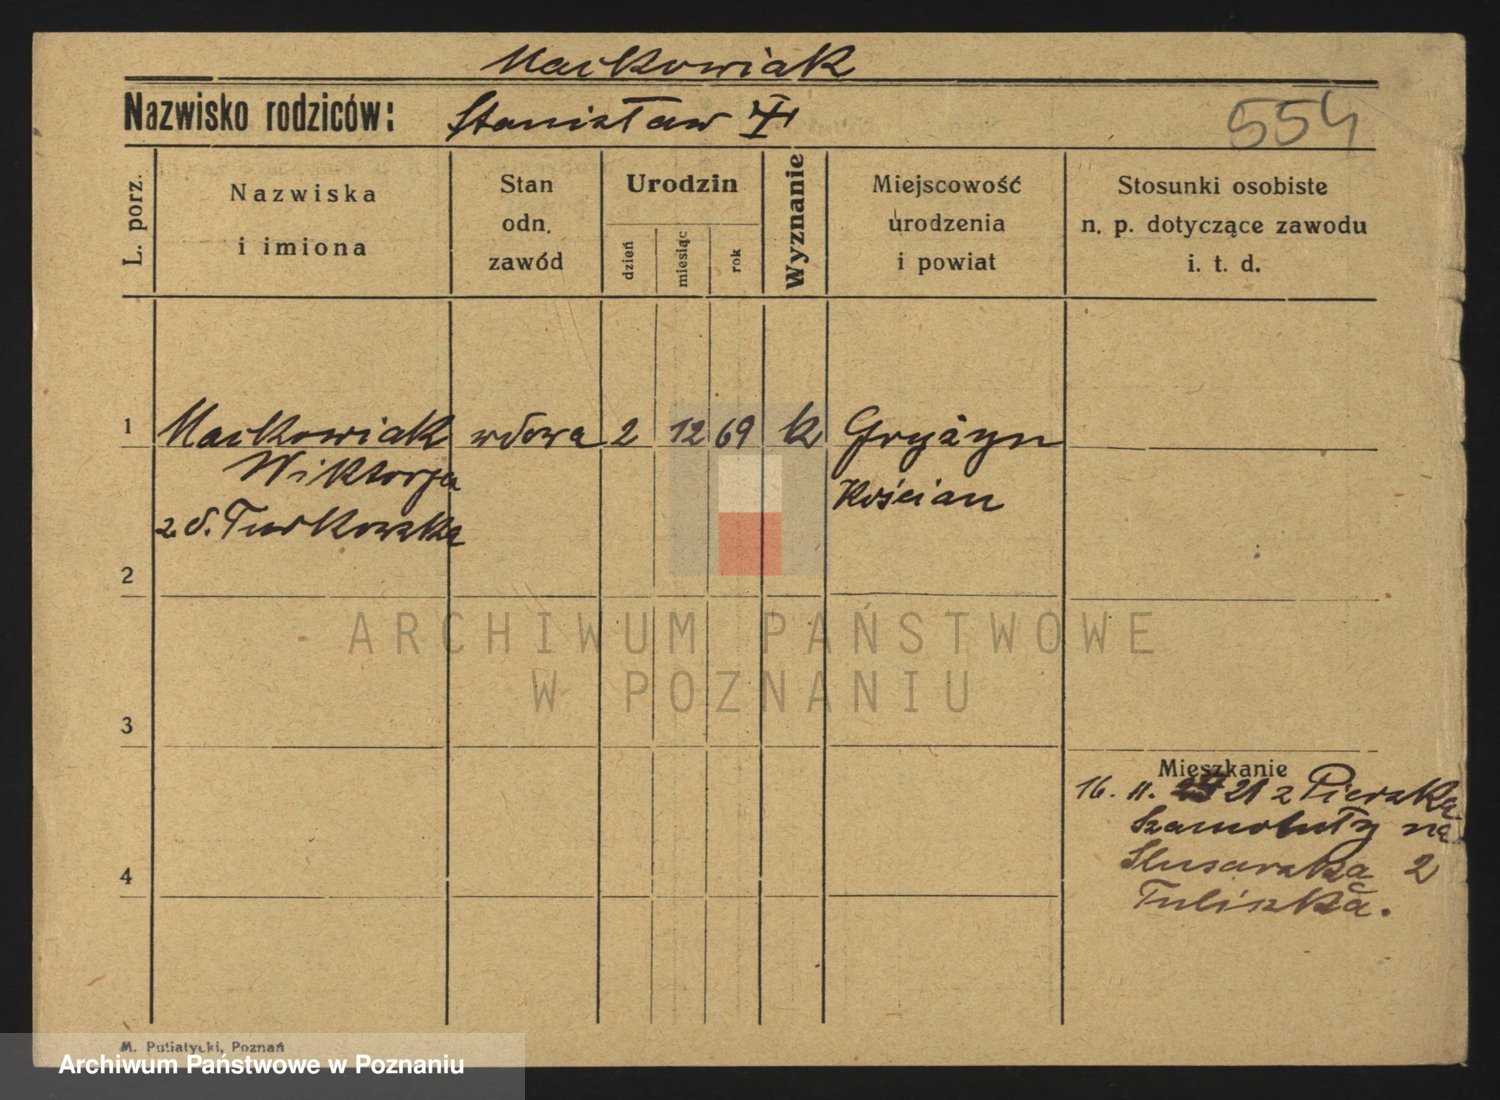 Maćkowiak
Nazwisko rodziców: Stanisław
554
L. porz.
Nazwiska
i imiona
Stan
odn.
zawód
Urodzin
dzień
miesiąc
rok
Wyznanie
Miejscowość
urodzenia
i powiat
Stosunki osobiste
n. p. dotyczące zawodu
i. t. d.
1 Maćkowiak wdowa 2 12 69 k Gryżyn
Wiktorja Kościan
z d. Turkowska
2
3
4
Mieszkanie
16. 11. 21 z Pierska
Szamotuły na
Ślusarska 2
Tuliszka.
ARCHIWUM PAŃSTWOWE
W POZNANIU
M. Putiatycki, Poznań
Archiwum Państwowe w Poznaniu